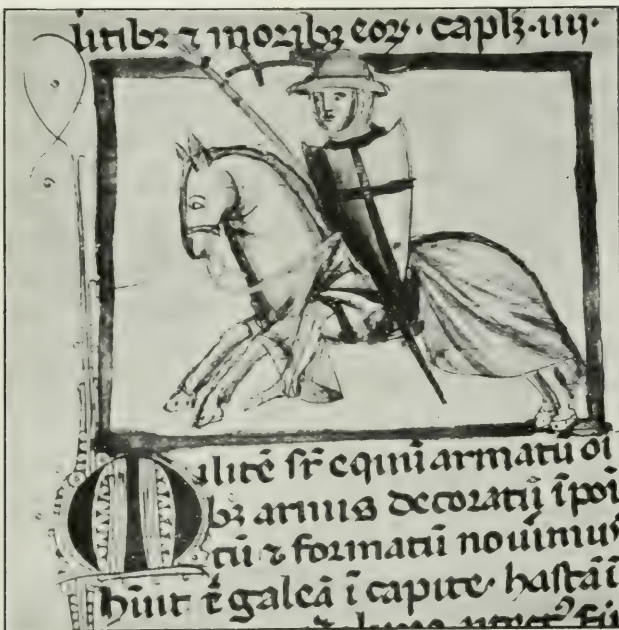 litibꝫ ⁊ moribꝫ eoꝝ · caplꝫ · iiij ·
Militē sr̄ equū armatū oī
bꝫ armis decoratū ī poī
tū ⁊ formatū nouimus
hūit ē galeā ī capite · hastā ī